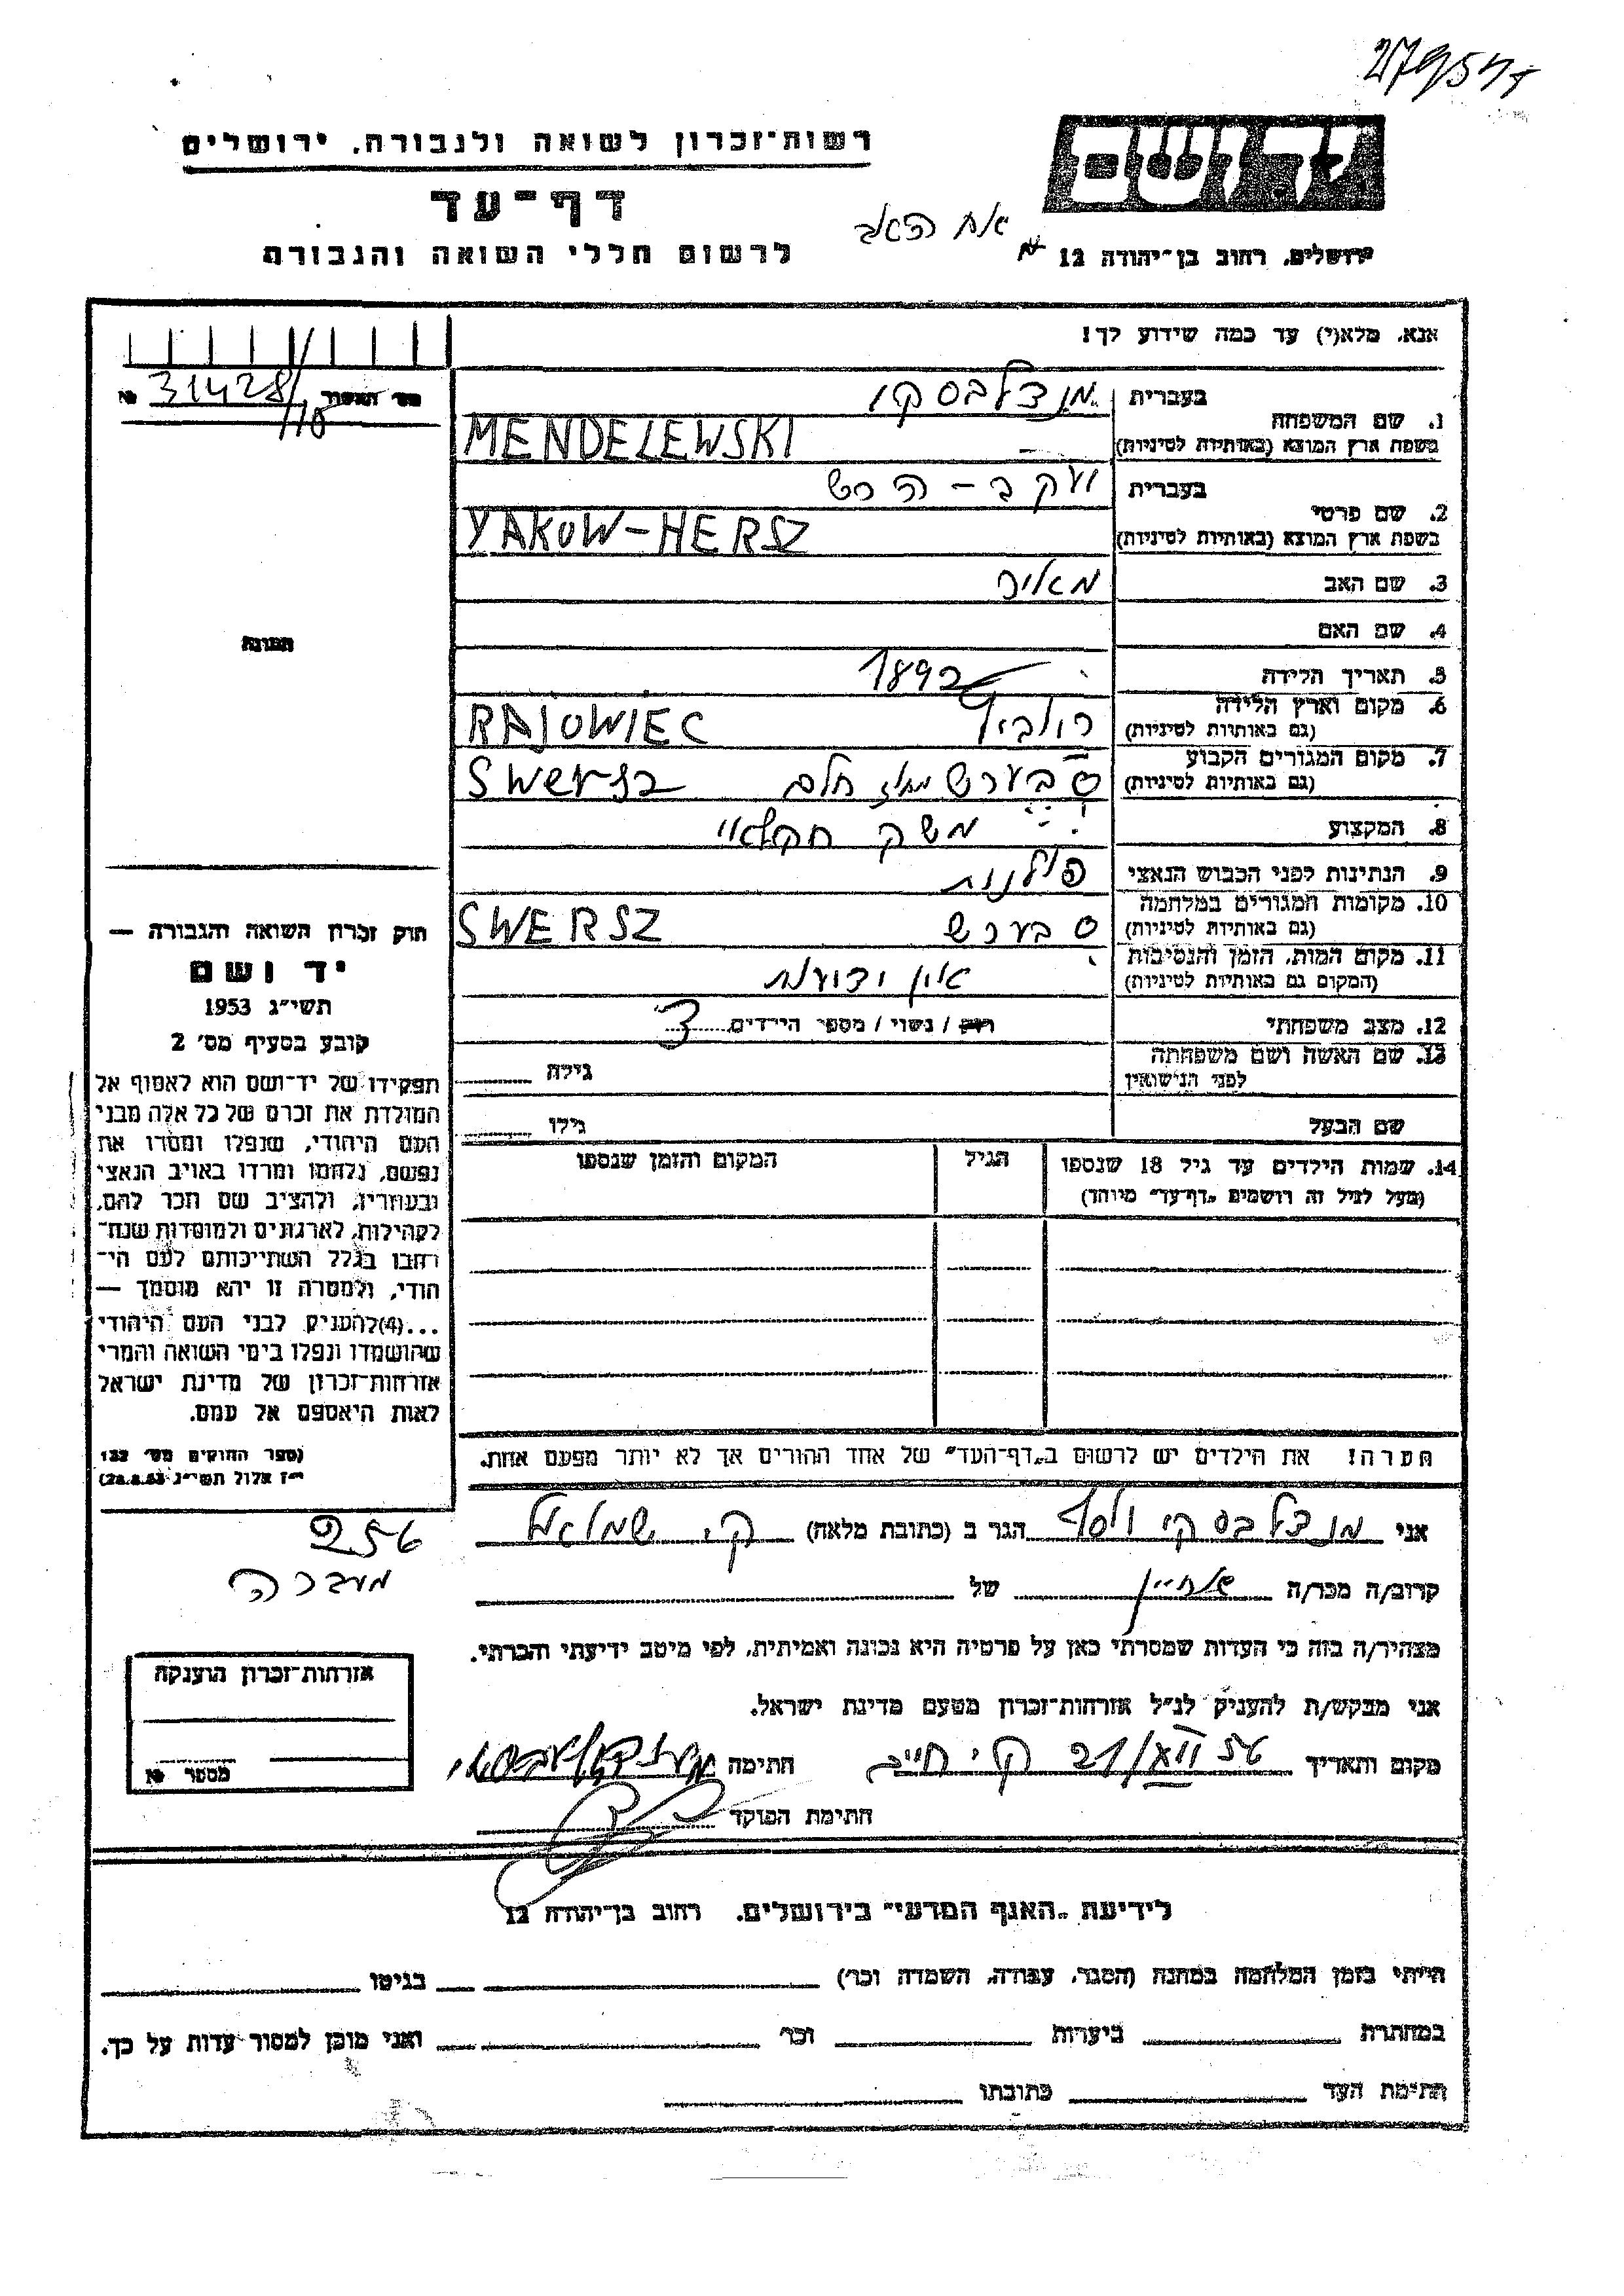 279547
רשות־זכרון לשואה ולגבורה, ירושלים
יד ושם
דף־עד
אח האב
לרשום חללי השואה והגבורה
ירושלים, רחוב בן־יהודה 12
אנא, מלא(י) עד כמה שידוע לך!
מס׳ האסור № 31428/10
1. שם המשפחה
בעברית מנדלבסקי
בשפת ארץ המוצא (באותיות לטיניות) MENDELEWSKI
2. שם פרטי
בעברית יעקב - הרש
בשפת ארץ המוצא (באותיות לטיניות) YAKOW-HERSZ
3. שם האב מאיר
4. שם האם
תמונה
5. תאריך הלידה 1892
6. מקום וארץ הלידה
(גם באותיות לטיניות) RAJOWIEC
7. מקום המגורים הקבוע
(גם באותיות לטיניות) סבערש חלם Swersz
8. המקצוע משק חקלאי
9. הנתינות לפני הכבוש הנאצי פולנית
10. מקומות המגורים במלחמה
(גם באותיות לטיניות) סבערש SWERSZ
11. מקום המות, הזמן והנסיבות
(המקום גם באותיות לטיניות) אין ידועות
12. מצב משפחתי רוק / נשוי / מספר הילדים
13. שם האשה ושם משפחתה
לפני הנישואין גילה
שם הבעל גילו
14. שמות הילדים עד גיל 18 שנספו הגיל המקום והזמן שנספו
(מעל לגיל זה רושמים „דף־עד״ מיוחד)
חוק זכרון השואה והגבורה —
יד ושם
תשי״ג 1953
קובע בסעיף מס׳ 2
תפקידו של יד־ושם הוא לאסוף אל
המולדת את זכרם של כל אלה מבני
העם היהודי, שנפלו ומסרו את
נפשם, נלחמו ומרדו באויב הנאצי
ובעוזריו, ולהציב שם וזכר להם,
לקהילות, לארגונים ולמוסדות שנח־
רבו בגלל השתייכותם לעם הי־
הודי, ולמטרה זו יהא מוסמך —
...(4) להעניק לבני העם היהודי
שהושמדו ונפלו בימי השואה והמרי
אזרחות־זכרון של מדינת ישראל
לאות היאספם אל עמם.
(ספר החוקים מס׳ 132
י״ז אלול תשי״ג 28.8.53)
הערה! את הילדים יש לרשום ב„דף־העד״ של אחד ההורים אך לא יותר מפעם אחת.
אני מנדלבסקי יוסף הגר ב (כתובת מלאה) ק. שמואל
256
מעברה
קרוב/ה מכר/ה אחיין של
מצהיר/ה בזה כי העדות שמסרתי כאן על פרטיה היא נכונה ואמיתית, לפי מיטב ידיעתי והכרתי.
אני מבקש/ת להעניק לנ״ל אזרחות־זכרון מטעם מדינת ישראל.
מקום ותאריך ק. חיים חתימה
חתימת הפוקד
אזרחות־זכרון הוענקה
מספר №
לידיעת „האגף המדעי״ בירושלים, רחוב בן־יהודה 12
הייתי בזמן המלחמה במחנה (הסגר, עבודה, השמדה וכו׳) בגיטו
במחתרת ביערות וכו׳ ואני מוכן למסור עדות על כך.
חתימת העד כתובתו